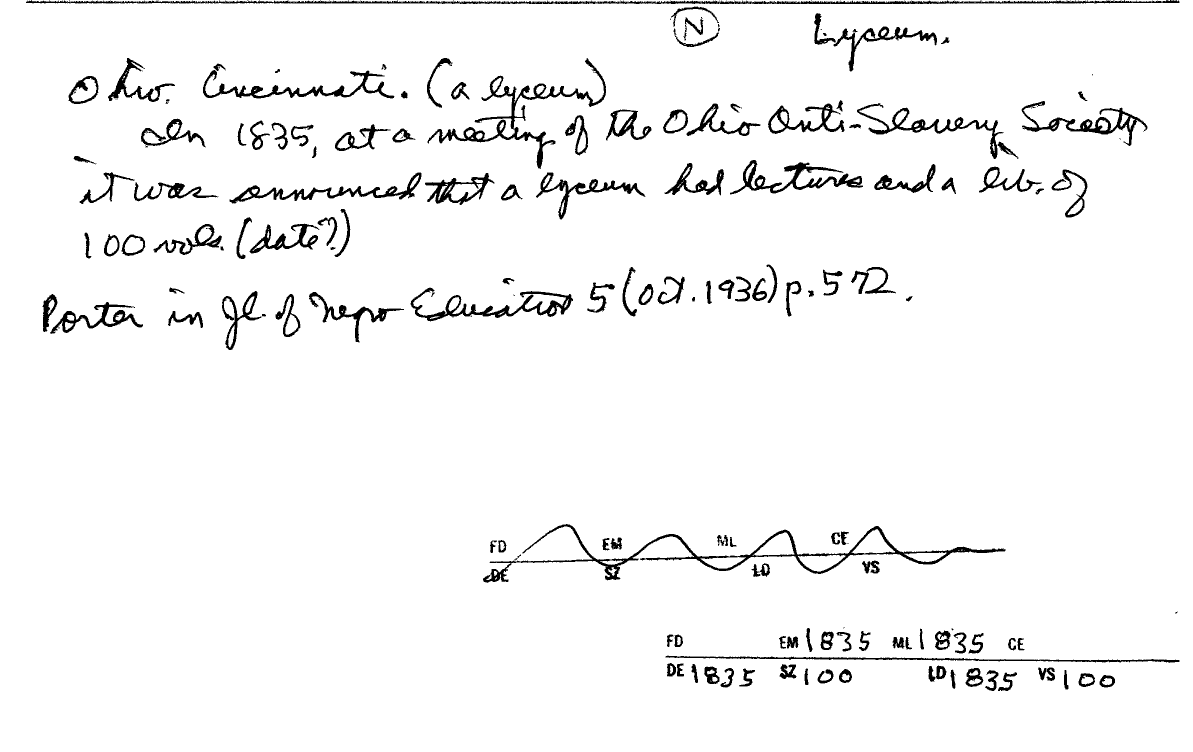 N Lyceum.
Ohio. Cincinnati. (a lyceum)
In 1835, at a meeting of the Ohio Anti-Slavery Society
it was announced that a lyceum had lectures and a lib. of
100 vols. (date?)
Porter in Jl. of Negro Education 5 (Oct. 1936) p. 572.
FD EM ML CE
DE SZ LD VS
FD EM 1835 ML 1835 CE
DE 1835 SZ 100 LD 1835 VS 100